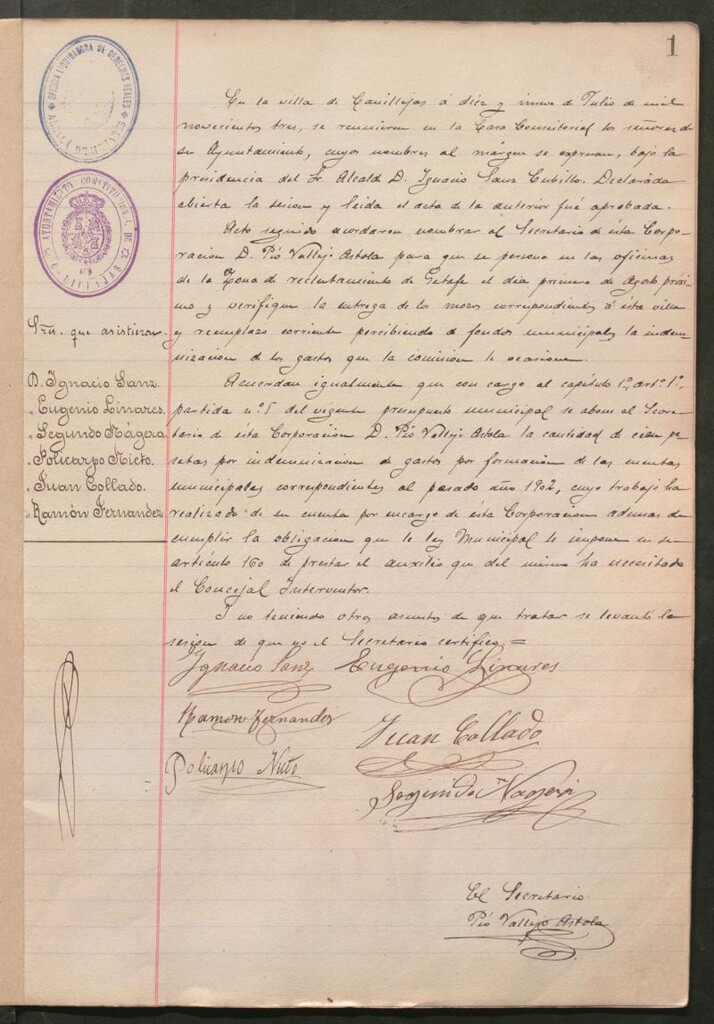 1
OFICINA LIQUIDADORA DE DERECHOS REALES
AYUNTAMIENTO CONSTITUCIONAL DE
En la villa de Canillejas á diez y nueve de Julio de mil
novecientos tres, se reunieron en la Casa Consistorial los señores de
su Ayuntamiento, cuyos nombres al márgen se expresan, bajo la
presidencia del Sr. Alcalde D. Ignacio Sanz Cubillo. Declarada
abierta la sesion y leida el acta de la anterior fué aprobada.
Acto seguido acordaron nombrar al Secretario de ésta Corpo-
racion D. Pió Vallejo Astola para que se persone en las oficinas
de la Zona de reclutamiento de Getafe el dia primero de Agosto próxi
mo y verifique la entrega de los mozos correspondientes á ésta villa
y reemplazo corriente percibiendo de fondos municipales la indem-
nizacion de los gastos que la comision le ocasione.
Acuerdan igualmente que con cargo al capítulo 1º, artº 1º,
partida nº 5 del vigente presupuesto municipal se abone al Secre-
tario de ésta Corporacion D. Pió Vallejo Astola la cantidad de cien pe-
setas por indemnizacion de gastos por formacion de las cuentas
municipales correspondientes al pasado año 1902, cuyo trabajo ha
realizado de su cuenta por encargo de ésta Corporacion ademas de
cumplir la obligacion que la ley Municipal le impone en su
artículo 160 de prestar el auxilio que del mismo ha necesitado
el Concejal Interventor.
Y no teniendo otros asuntos de que tratar se levantó la
sesion de que yo el Secretario certifico =
Sres. que asistieron
D. Ignacio Sanz
" Eugenio Linares
" Segundo Nágera
" Policarpo Nieto
" Juan Collado
" Ramón Fernandez
Ignacio Sanz Eugenio Linares
Ramon Fernandez
Juan Collado
Policarpo Nieto
Segundo Nagera
El Secretario
Pió Vallejo Astola